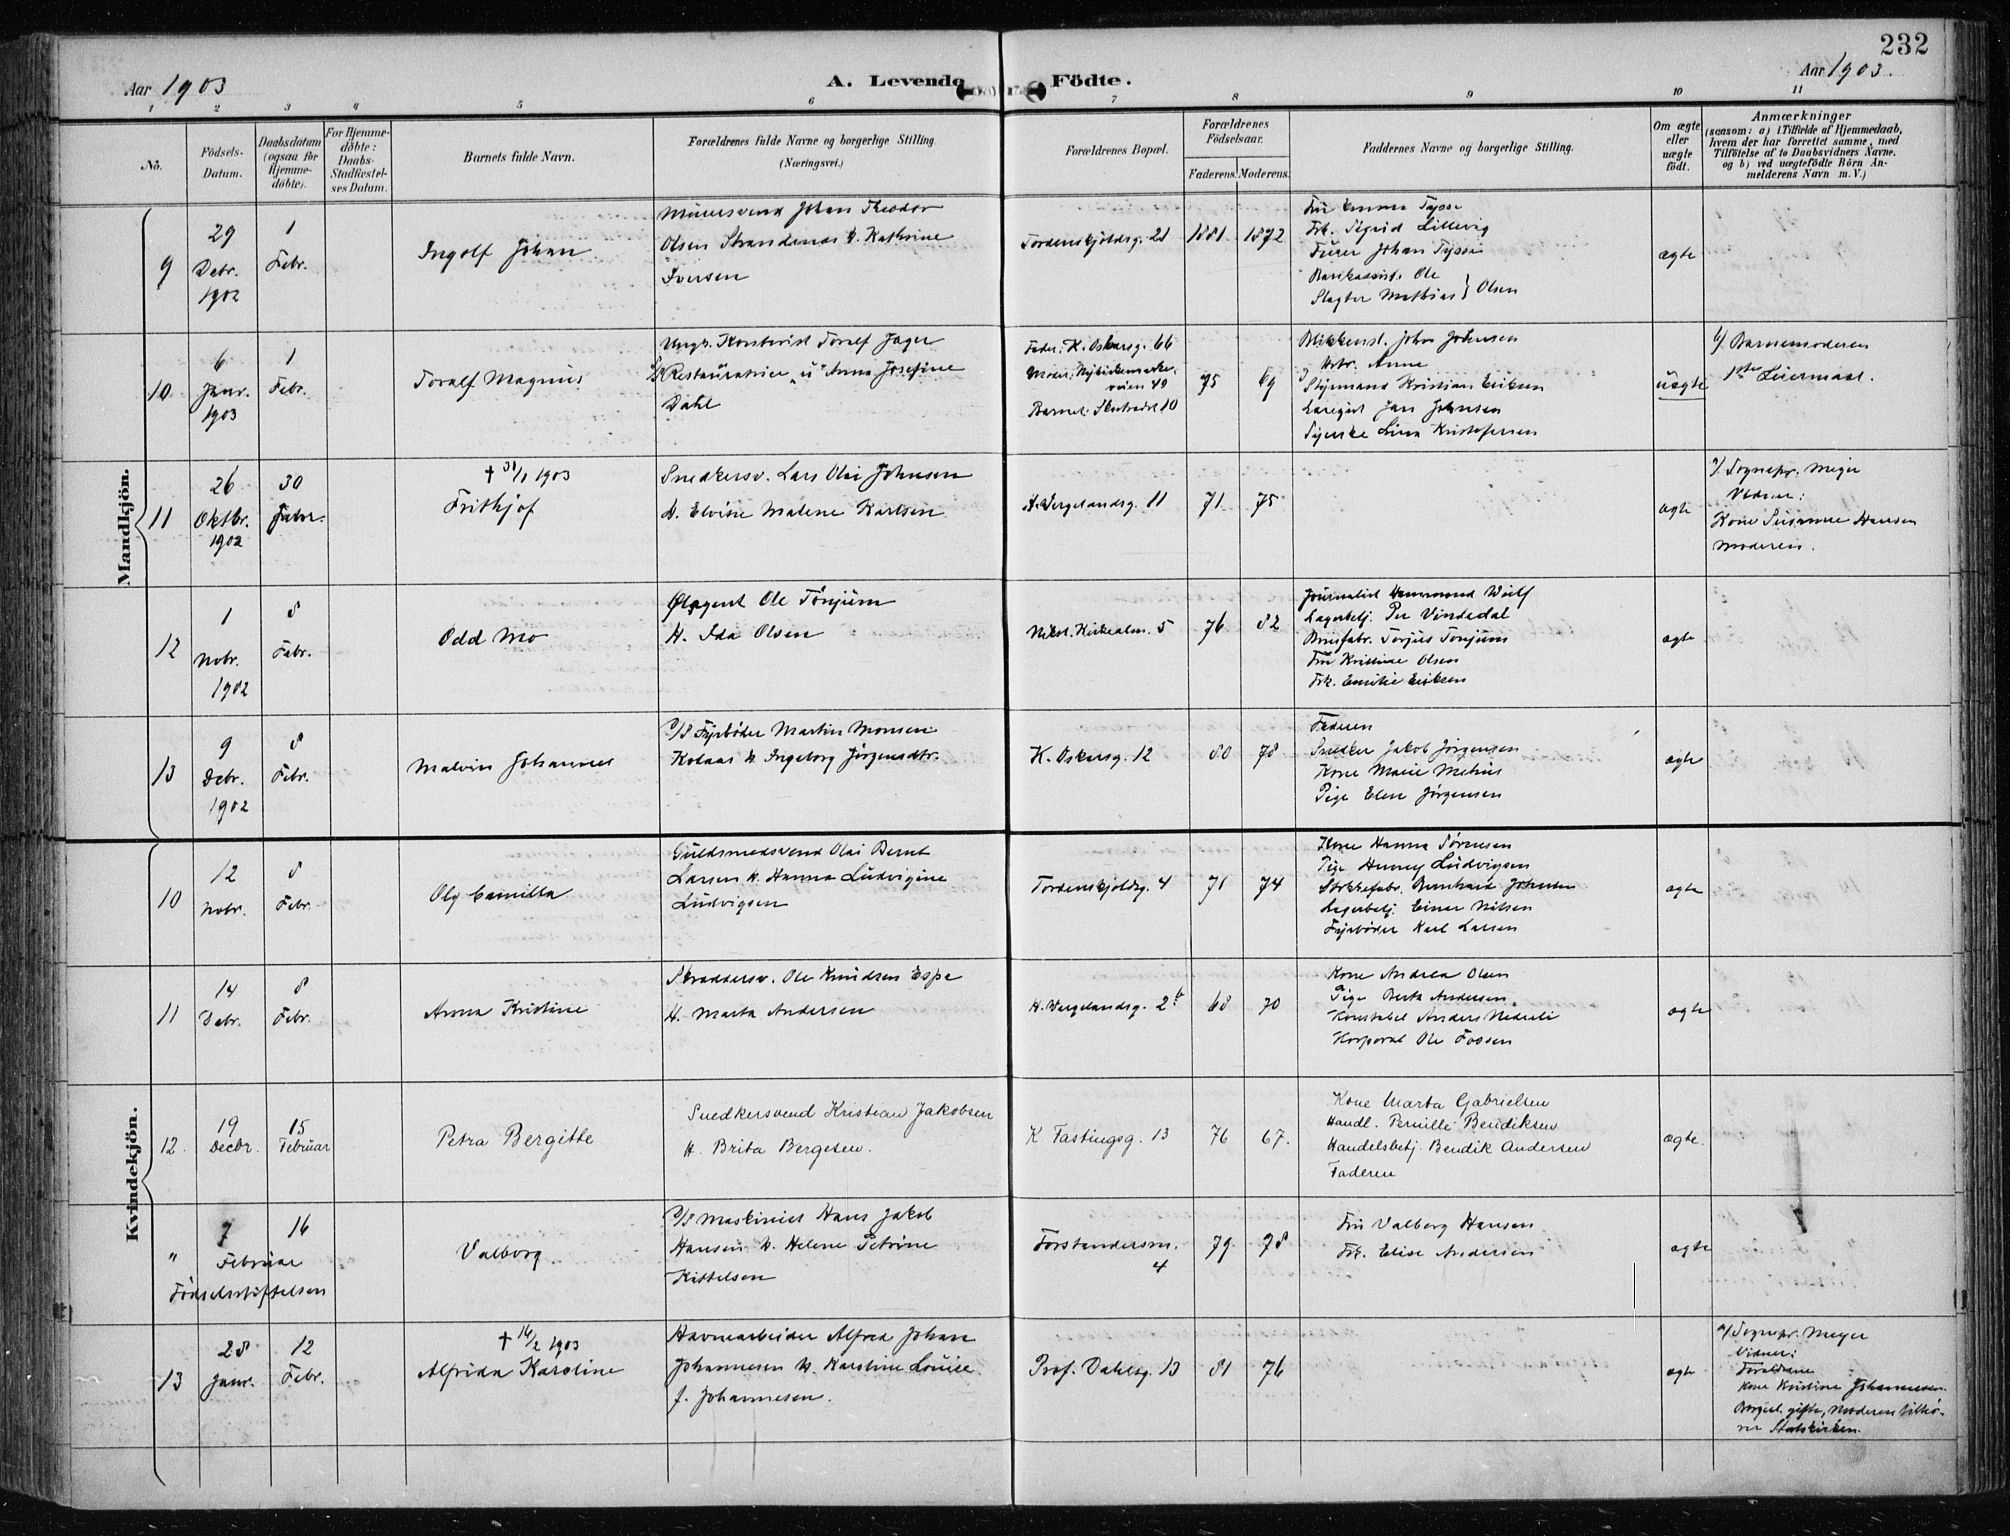 232
Aar 1903
A. Levende Födte.
Aar 1903.
1 2 3 4 5 6 7 8 9 10 11
No.
Födsels-
Datum.
Daabsdatum
(ogsaa for
Hjemme-
döbte).
For Hjemme-
döbte:
Daabs-
Stadfæstel-
ses Datum.
Barnets fulde Navn.
Forældrenes fulde Navne og borgerlige Stilling
(Næringsvei.)
Forældrenes Bopæl.
Forældrenes
Födselsaar.
Faderens. Moderens.
Faddernes Navne og borgerlige Stilling.
Om ægte
eller
uægte
født.
Anmærkninger
(saasom: a) i Tilfælde af Hjemmedaab,
hvem der har forrettet samme, med
Tilföielse af to Daabsvidners Navne.
og b) ved uægtefödte Börn An-
melderens Navn m. V.)
Mandkjön.
9
29
Debr.
1902
1
Febr.
Ingolf Johan
Murersvend Johan Theodor
Olsen Strandenas & Kathrine
Iversen
Tordenskjoldsg. 21
1881
1872
Fru Emma Tysse
Frk. Sigrid Lillevig
Furer Johan Tysse
Ole
Slagter Mathias } Olsen
ægte
10
6
Janr.
1903
1
Febr.
Toralf Magnus
Ungk. Toralf Jager
Restauratrice "u" Anna Josefine
Dahl
Fader: K. Oskarsg. 66
Moder: Nykirkemarke-
veien 49
Barnet: 10
75
69
Blikkensl. John Johnsen
Anne
Styrmand Kristian Eriksen
Jan Johnsen
Syerske Lina Kristofersen
uægte
b/ Barnemoderen
1ste Leiermaal.
11
26
Oktbr.
1902
30
Janr.
† 31/1 1903
Fritkjof
Snedkersv. Lars Olai Johnsen
& Elvine Malene Karlsen
H. Vergelandsg. 11
71
75
ægte
a/ Sognepr. Meyer
Vidner:
Kone Susanne Hansen
Moderen.
12
1
Nobr.
1902
8
Febr.
Odd Mo
Ølagent Ole Tönjum
H. Ida Olsen
Nikol. Kirkealm. 5
76
82
Journalist Hammond Wulf
Lagerbetj. Per Vindedal
Brusfabr. Torjus Tonjum
Fru Kristine Olsen
Frk. Emilie Eriksen
ægte
13
9
Debr.
1902
8
Febr.
Malvin Johannes
D/S Fyrböder Martin Monsen
Kolaas & Ingeborg Jörgensdtr.
K. Oskarsg. 12
80
78
Faderen
Snedker Jakob Jörgensen
Kone Marie Metius
Pige Elen Jörgensen
ægte
Kvindekjön.
10
12
Nobr.
8
Febr.
Olg Camilla
Guldsmedsvend Olai Bernt
Larsen & Hanna Ludvigine
Ludvigsen
Tordenskjoldsg. 4
71
74
Kone Hanna Sörensen
Pige Henny Ludvigsen
Bernhard Johnsen
Lagerbetj. Einar Nilsen
Fyrböder Karl Larsen
ægte
11
14
Debr.
8
Febr.
Anna Kristine
Skreddersv. Ole Knudsen Espe
H. Marta Andersen
H. Vergelandsg. 2b
68
70
Kone Andrea Olsen
Pige Berta Andersen
Konstabel Anders Nedreli
Korporal Ole Fossen
ægte
12
19
Decbr.
15
Februar
Petra Bergitte
Snedkersvend Kristian Jakobsen
H. Brita Bergesen.
K Fastingsg. 13
76
67.
Kone Marta Gabrielsen
Handl. Pernille Bendiksen
Handelsbetj. Bendik Andersen
Faderen
ægte.
"
7
Februar
Födselsstiftelsen
16
Valborg
D/S Maskinist Hans Jakob
Hansen & Helene Petrine
Kittelsen
Forstandersm.
4
79
78
Fru Valborg Hansen
Frk. Elise Andersen
ægte
13
28
Janr.
12
Febr.
† 14/2 1903
Alfrida Karoline
Havnearbeider Alfred Johan
Johannesen & Karoline Louise
f. Johannesen.
Prof. Dahlsg. 13
81
76
ægte
a/ Sognepr. Meyer
Vidner:
Forældrene
Kone Kristine Johannesen.
Borgerl. gifte, Moderen tilhö-
rer Statskirken.